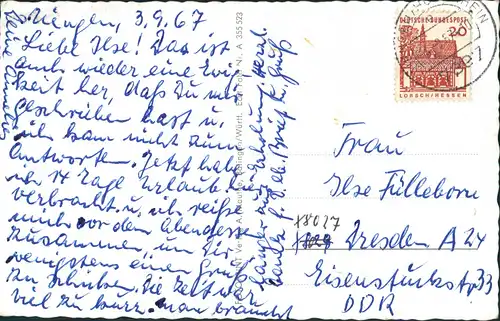 3.9.67
Liebe Ilse! Das ist
auch wieder eine Ewig
keit her, daß Du mir
geschrieben hast u.
ich kam nicht zum
Antworten. Jetzt habe
ich 14 Tage Urlaub
verbracht u. ich reiße
mich vor dem Abendessen
zusammen, um Dir
wenigstens einen Gruß
zu schicken. Die Zeit war
viel zu kurz. Man braucht
länger zur Erholung. Herzl.
Dank f. D. lb. Brief u. Gruß
Nr. A 355 523
DEUTSCHE BUNDESPOST
20
LORSCH/HESSEN
Frau
Ilse Fülleborn
18027
Dresden A 24
Eisenstuckstr. 33
DDR